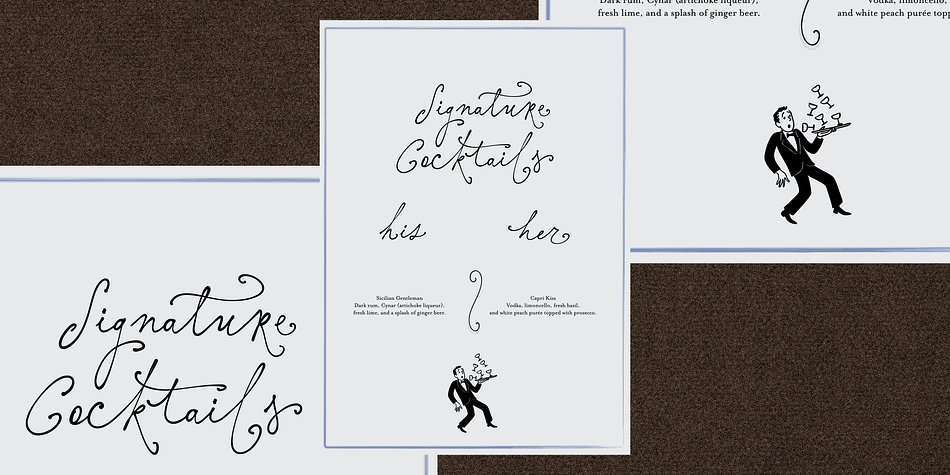 Dark rum, Cynar (artichoke liqueur),
fresh lime, and a splash of ginger beer.
Vodka, limoncello,
and white peach purée topp
Signature
Cocktails
his
her
Sicilian Gentleman
Dark rum, Cynar (artichoke liqueur),
fresh lime, and a splash of ginger beer.
Capri Kiss
Vodka, limoncello, fresh basil,
and white peach purée topped with prosecco.
Signature
Cocktails